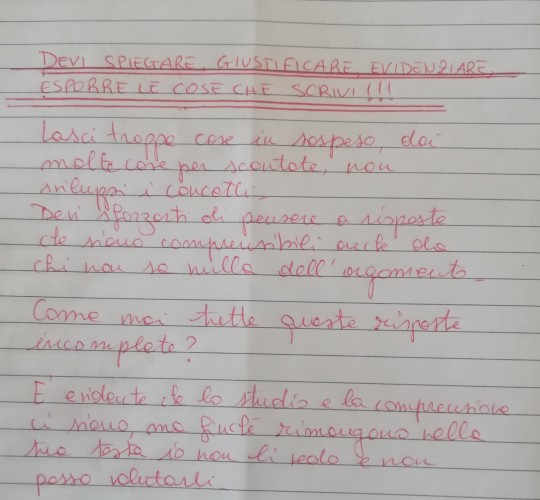 DEVI SPIEGARE, GIUSTIFICARE, EVIDENZIARE,
ESPORRE LE COSE CHE SCRIVI!!!
Lasci troppe cose in sospeso, dai
molte cose per scontate, non
sviluppi i concetti.
Devi sforzarti di pensare a risposte
che siano comprensibili anche da
chi non sa nulla dell'argomento.
Come mai tutte queste risposte
incomplete?
E' evidente che lo studio e la comprensione
ci siano, ma finché rimangono nella
tua testa io non li vedo e non
posso valutarli.